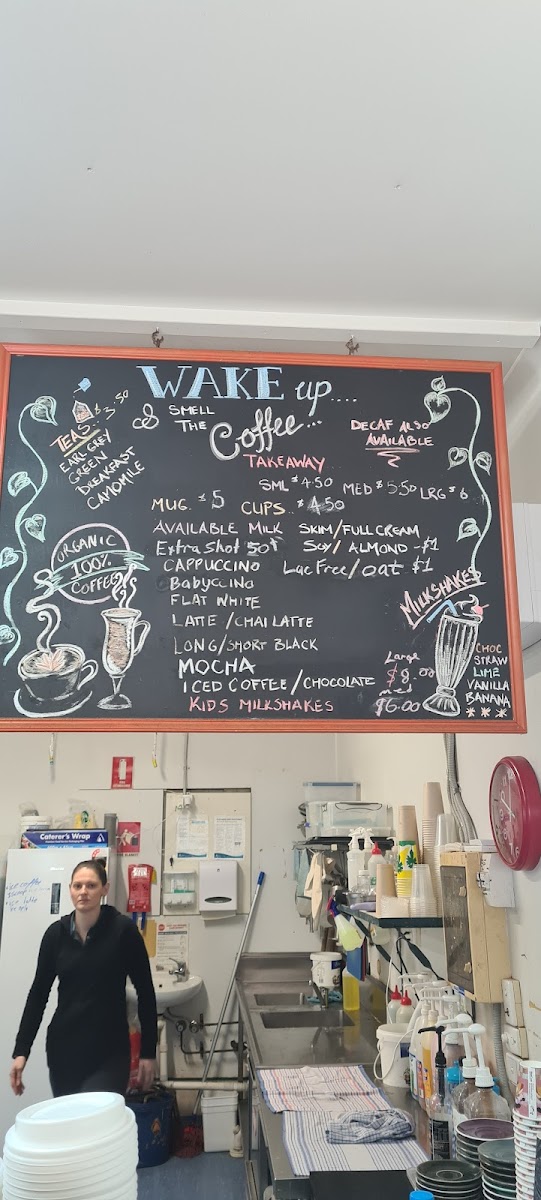 WAKE up....
& SMELL
THE
Coffee...
DECAF ALSO
AVAILABLE
TEAS.. $3.50
EARL GREY
GREEN
BREAKFAST
CAMOMILE
TAKEAWAY
SML $4.50 MED $5.50 LRG $6
MUG. $5 CUPS.. $4.50
AVAILABLE MILK SKIM/FULL CREAM
Extra Shot 50¢ SOY/ ALMOND -$1
CAPPUCCINO Lac Free/oat $1
Babyccino
FLAT WHITE
LATTE / CHAI LATTE
LONG/SHORT BLACK
MOCHA
ICED COFFEE / CHOCOLATE
KIDS MILKSHAKES
ORGANIC
100%
COFFEE
MILKSHAKES
Large
$8.00
med
$6.00
CHOC
STRAW
LIME
VANILLA
BANANA
Caterer's Wrap